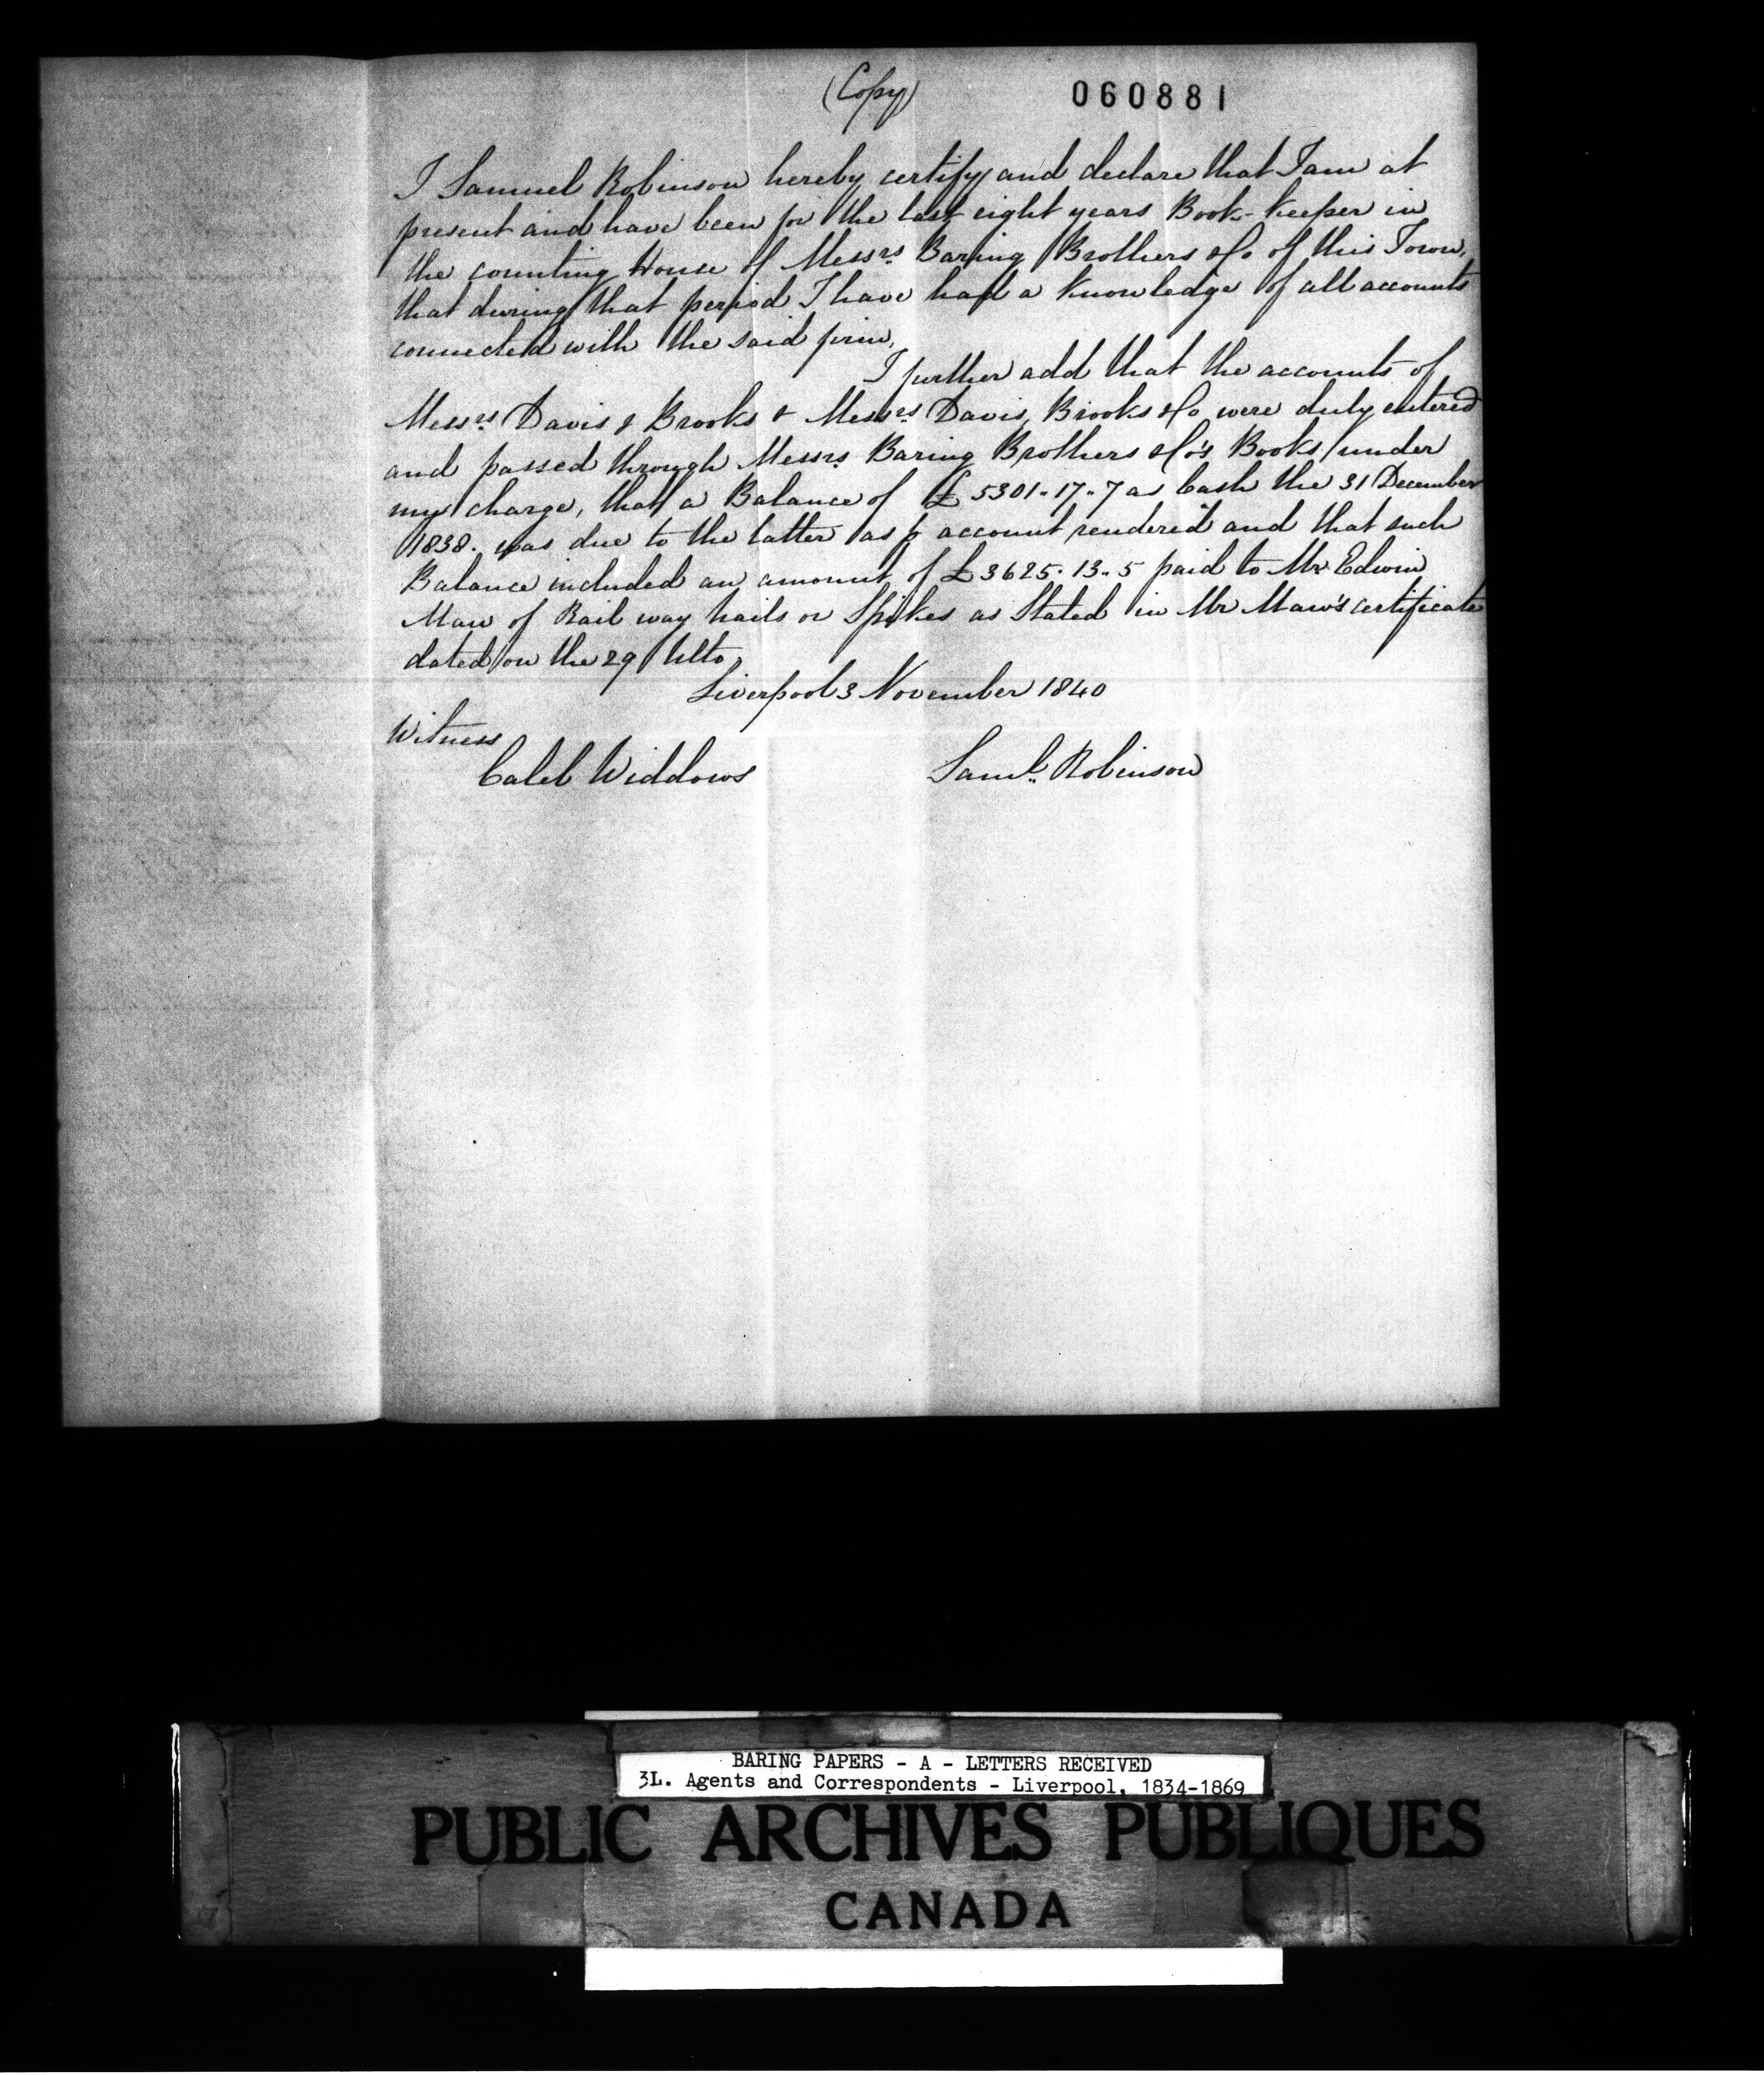 (Copy)
060881
I Samuel Robinson hereby certify and declare that I am at
present and have been for the last eight years Book-keeper in
the counting House of Messrs Baring Brothers &Co of this Town,
that during that period I have had a knowledge of all accounts
connected with the said firm,
I further add that the accounts of
Messrs Davis & Brooks & Messrs Davis, Brooks &Co were duly entered
and passed through Messrs Baring Brothers &Co's Books under
my charge, that a Balance of £5301-17-7 as Cash the 31 December
1838. was due to the latter as p account rendered and that such
Balance included an amount of £3625.13.5 paid to Mr Edwin
Maw of Rail way nails or Spikes as Stated in Mr Maw's certificate
dated on the 29 Ulto,
Liverpool 3 November 1840
Witness
Caleb Widdows
Saml. Robinson
BARING PAPERS - A - LETTERS RECEIVED
3L. Agents and Correspondents - Liverpool, 1834-1869
PUBLIC ARCHIVES PUBLIQUES
CANADA